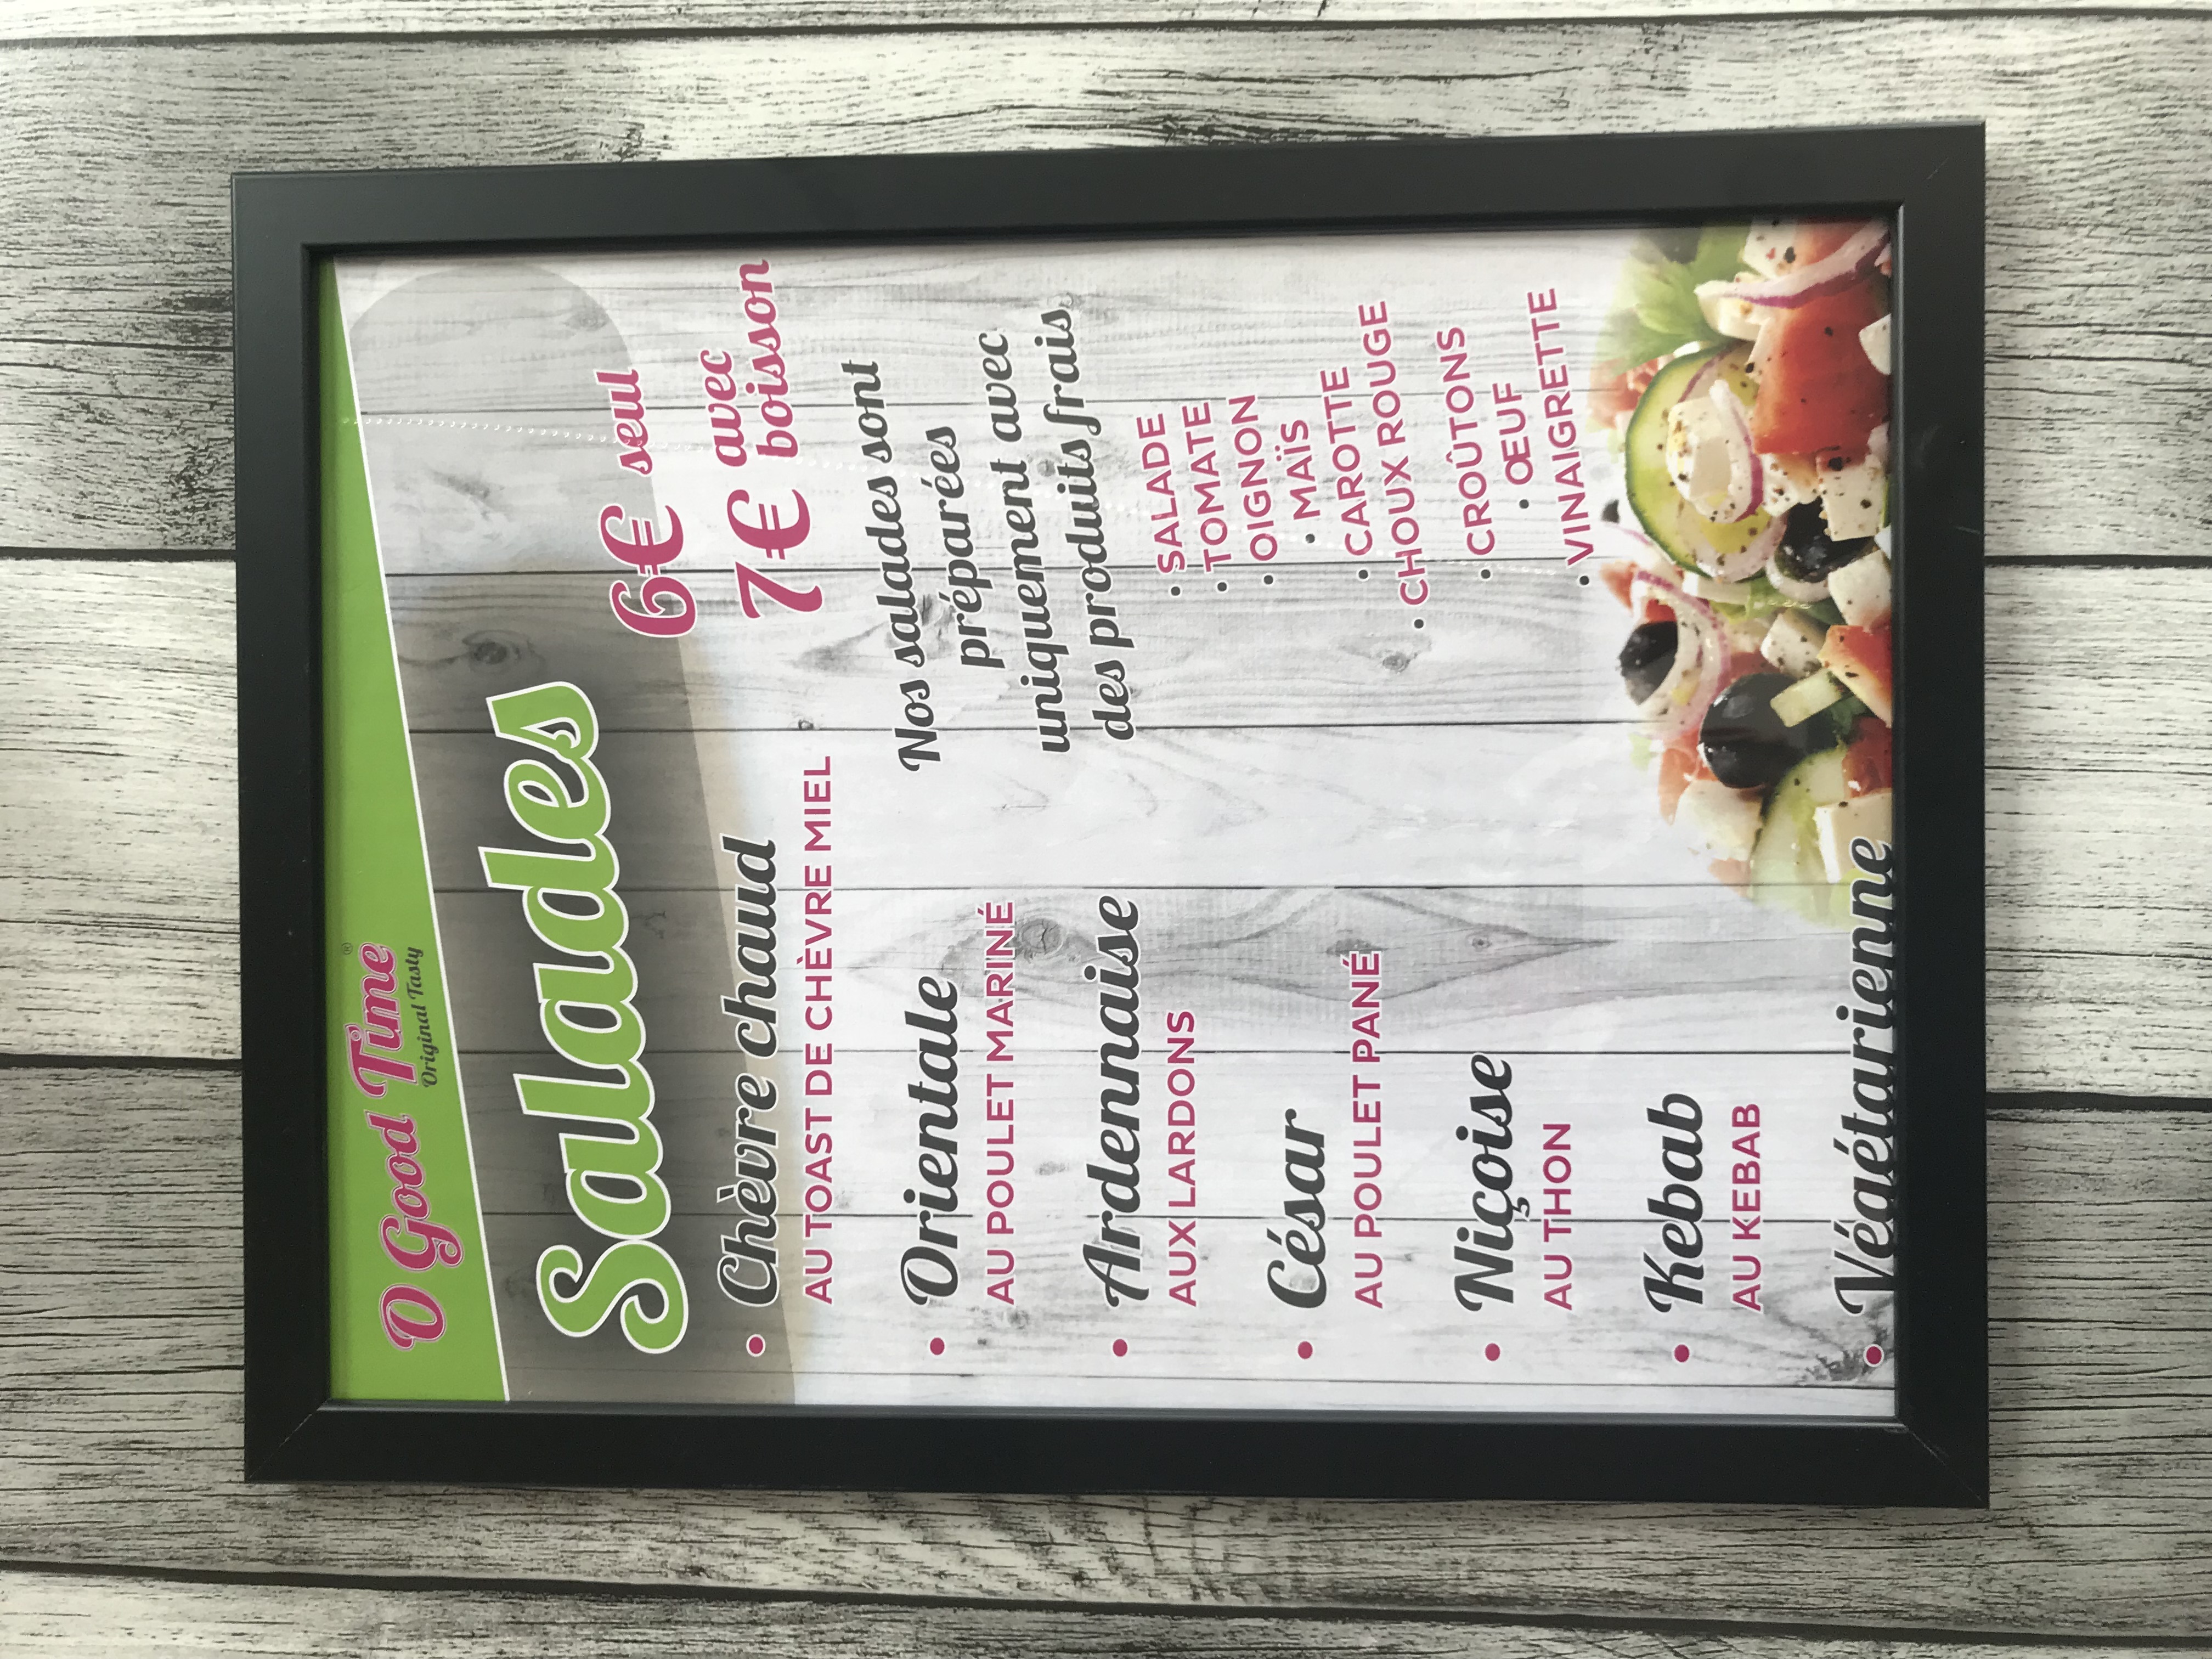 O Good Time®
Original Tasty
Salades
6€ seul
7€ avec
boisson
• Chèvre chaud
AU TOAST DE CHÈVRE MIEL
• Orientale
AU POULET MARINÉ
• Ardennaise
AUX LARDONS
• César
AU POULET PANÉ
• Niçoise
AU THON
• Kebab
AU KEBAB
• Végétarienne
Nos salades sont
préparées
uniquement avec
des produits frais
• SALADE
• TOMATE
• OIGNON
• MAÏS
• CAROTTE
• CHOUX ROUGE
• CROÛTONS
• ŒUF
• VINAIGRETTE